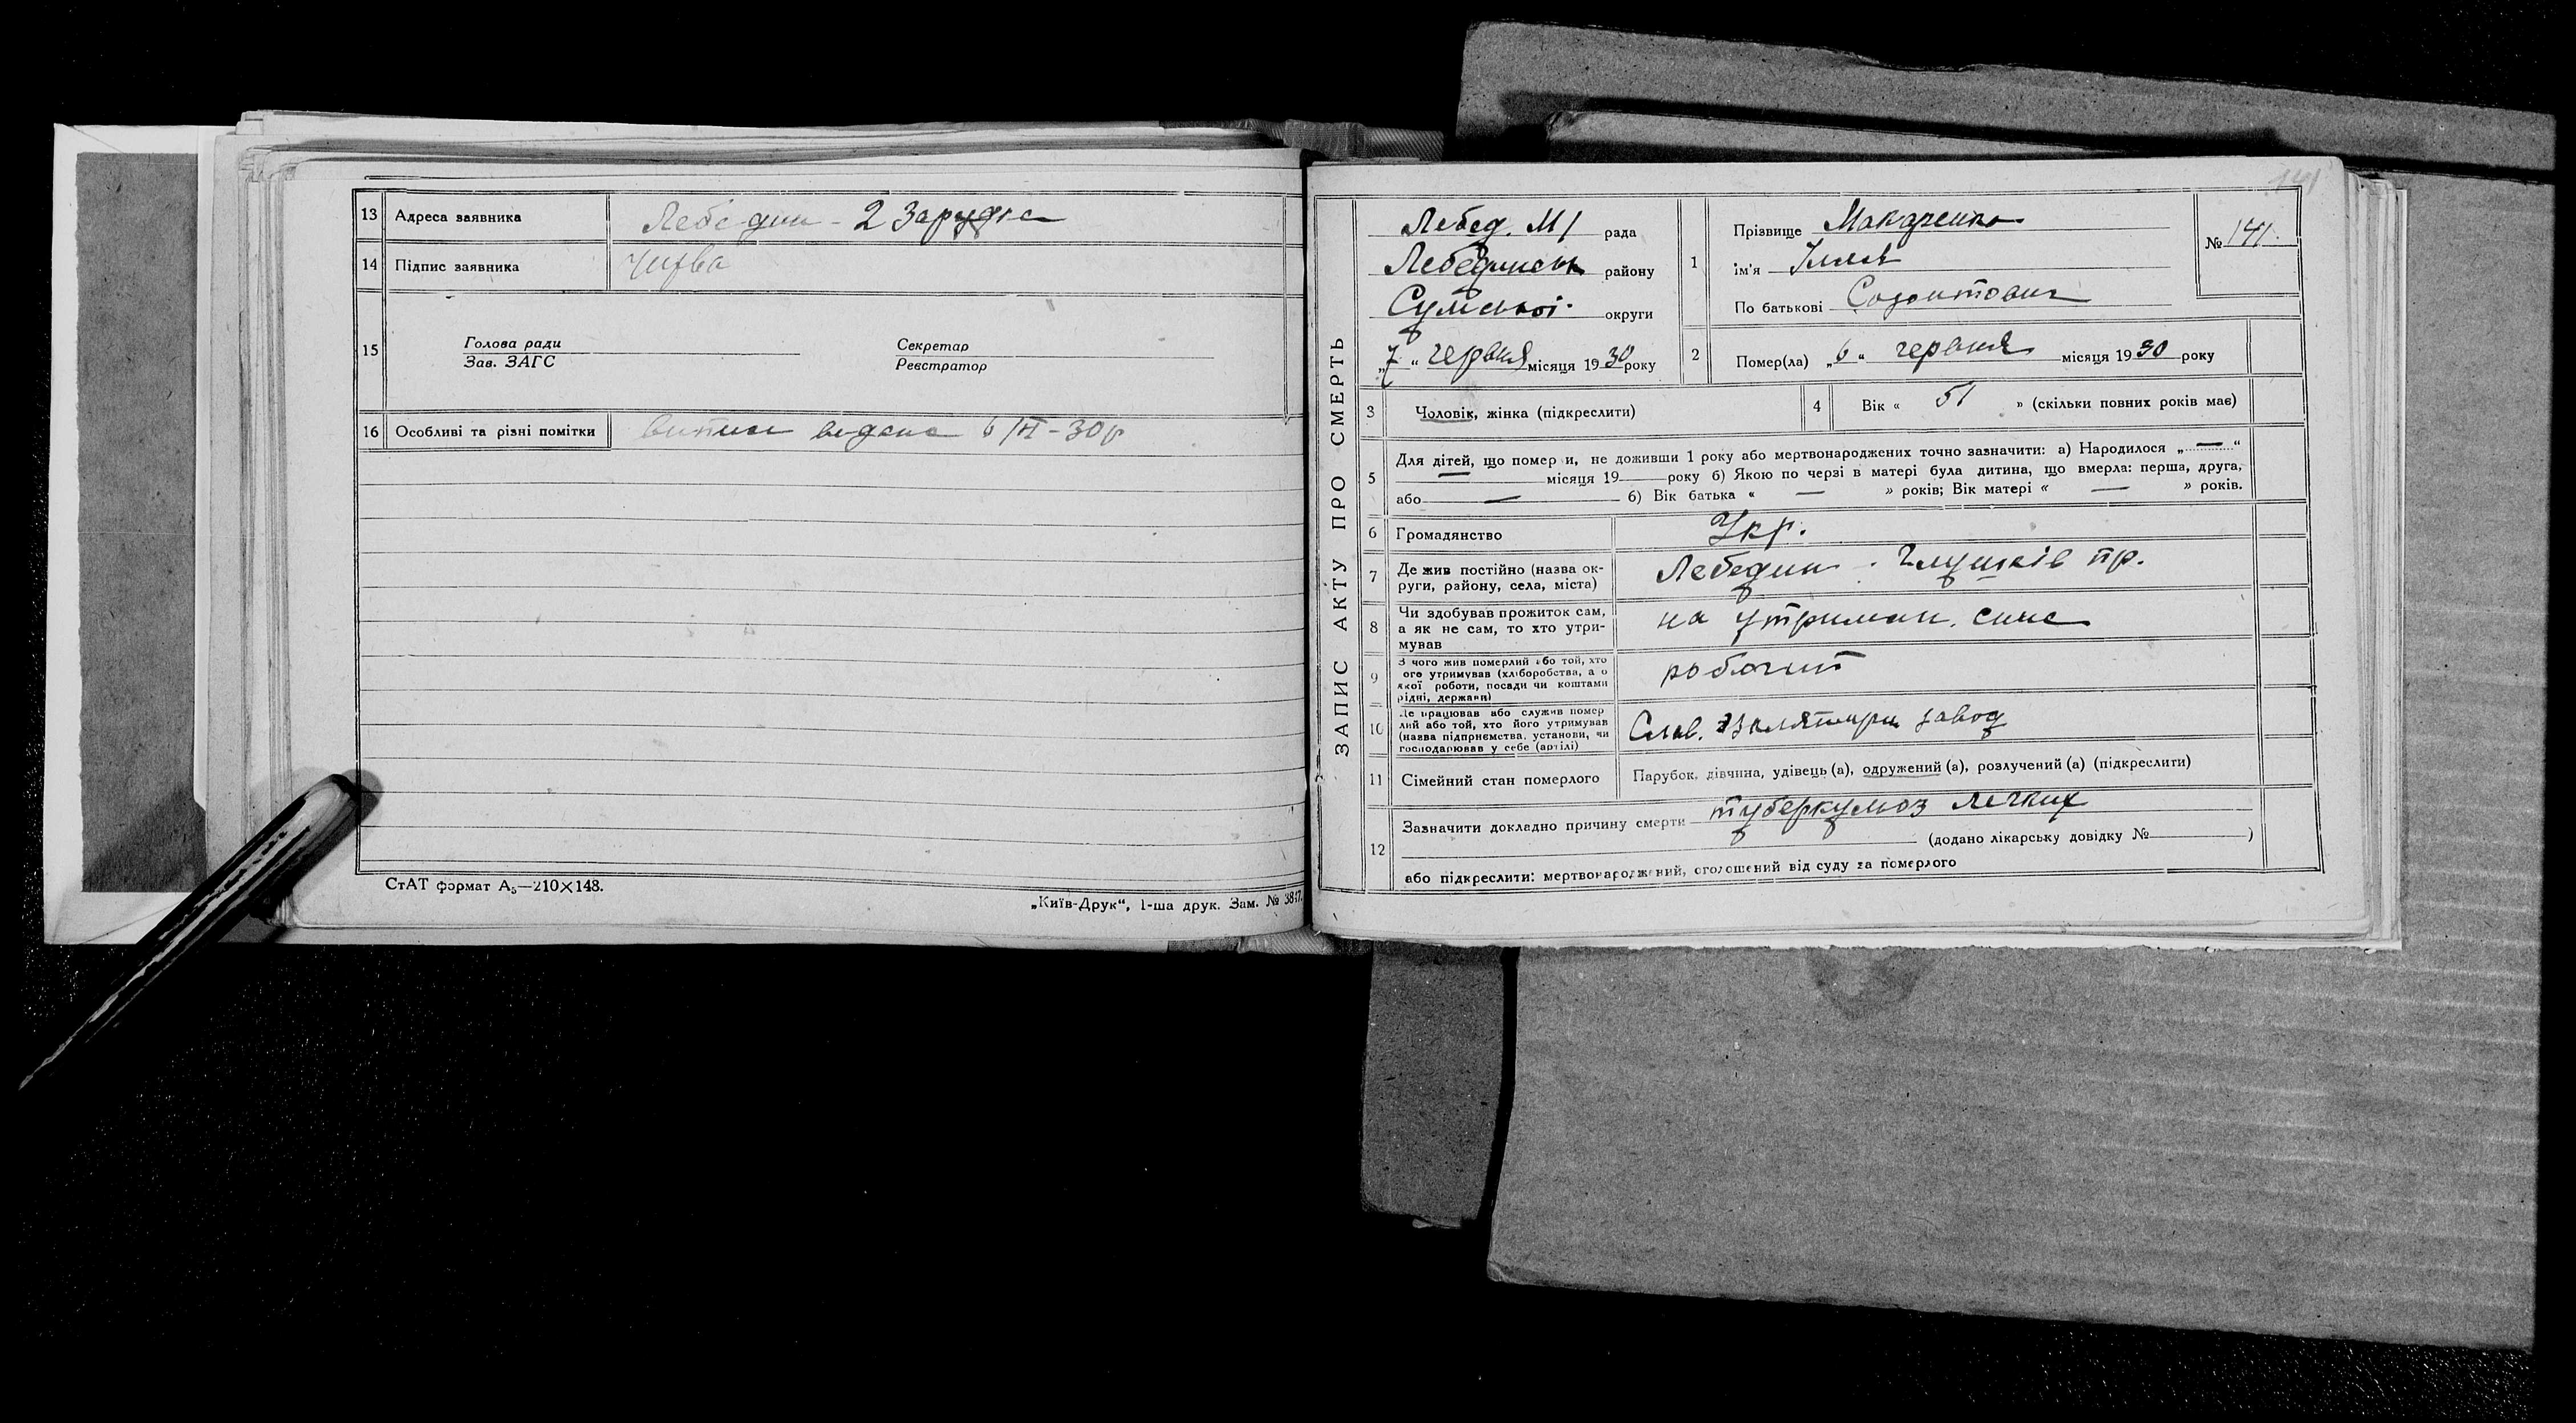 13 Адреса заявника Лебедин - 2 Зарудка
14 Підпис заявника
15 Голова ради
Зав. ЗАГС
Секретар
Реєстратор
16 Особливі та різні помітки випис видано 6/VI-30р
СтАТ формат А₅—210×148.
„Київ-Друк“, 1-ша друк. Зам. № 3847.
141
ЗАПИС АКТУ ПРО СМЕРТЬ
Лебед. М/ рада
Лебединськ району
Сумської округи
„7“ червня місяця 1930 року
1 Прізвище Макаренко
ім'я Ілля
По батькові Созонтович
№ 141.
2 Помер(ла) „6“ червня місяця 1930 року
3 Чоловік, жінка (підкреслити)
4 Вік « 51 » (скільки повних років має)
5 Для дітей, що помер и, не доживши 1 року або мертвонароджених точно зазначити: а) Народилося „—“
— місяця 19 року б) Якою по черзі в матері була дитина, що вмерла: перша, друга,
або — б) Вік батька « — » років; Вік матері « — » років.
6 Громадянство Укр.
7 Де жив постійно (назва ок-
руги, району, села, міста) Лебедин . Глушків пр.
8 Чи здобував прожиток сам,
а як не сам, то хто утри-
мував на утриман. сина
9 З чого жив померлий або той, хто
ого утримував (хліборобства, а о
якої роботи, посади чи коштами
рідні, держави) робочий
10 Де працював або служив помер
лий або той, хто його утримував
(назва підприємства, установи, чи
господарював у себе (артілі) Слав. завод
11 Сімейний стан померлого Парубок, дівчина, удівець (а), одружений (а), розлучений (а) (підкреслити)
12 Зазначити докладно причину смерти туберкульоз легких
(додано лікарську довідку № )
або підкреслити: мертвонароджений, оголошений від суду за померлого